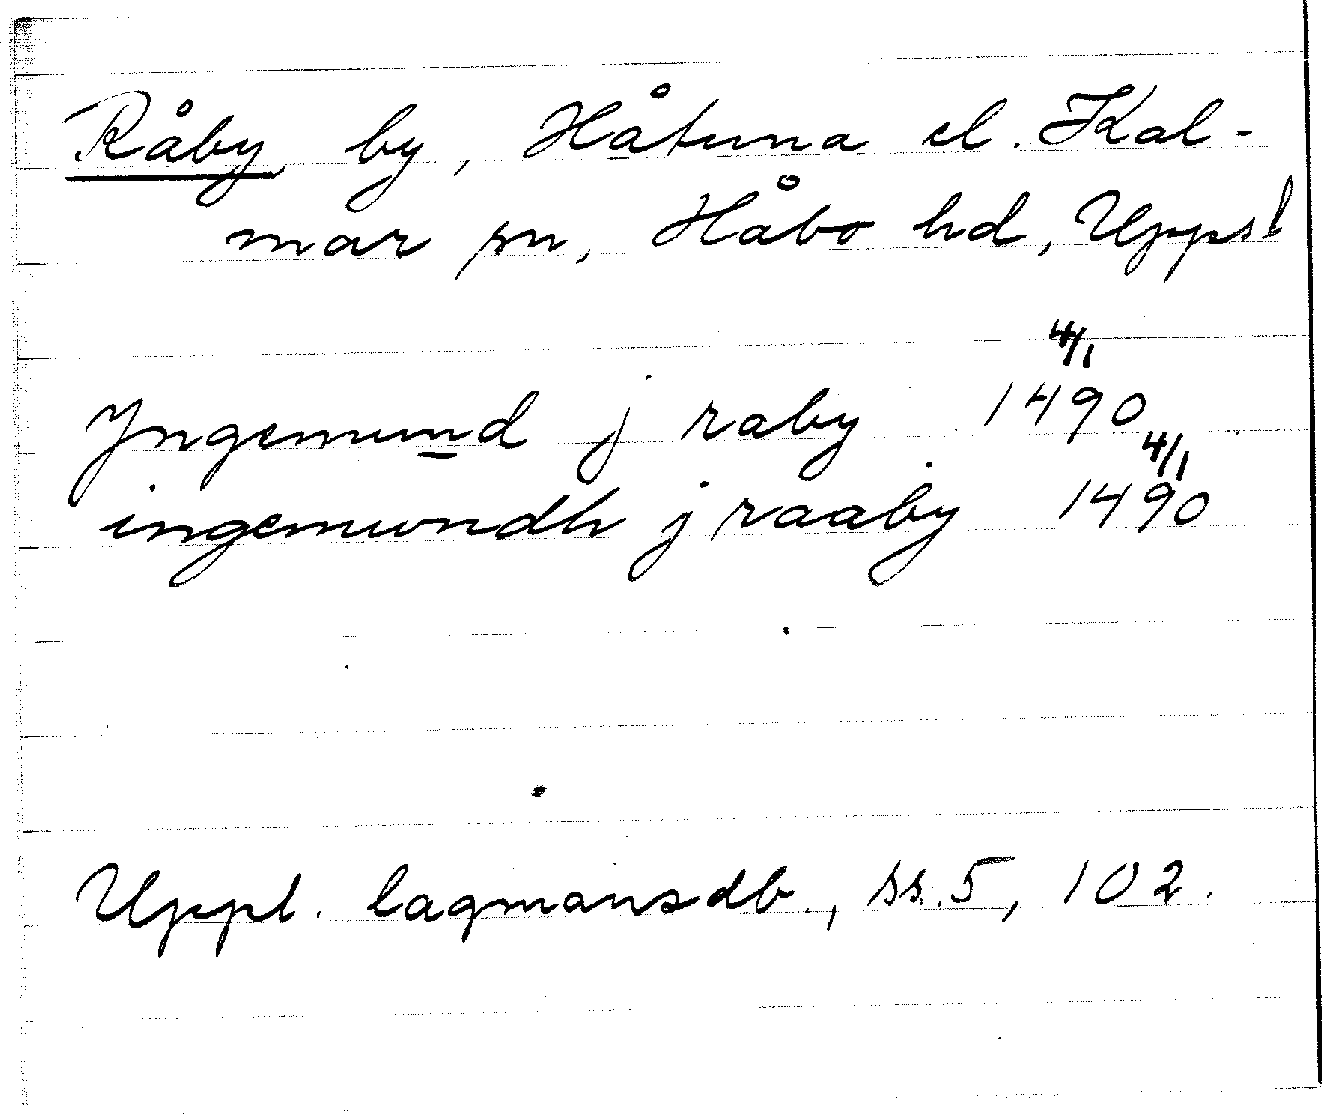 Råby by, Håtuna el. Kal-
mar sn, Håbo hd, Upps l
Yngemund j raby 4/1 1490
ingemundh j raaby 4/1 1490
Uppl. lagmansdb., ss. 5, 102.